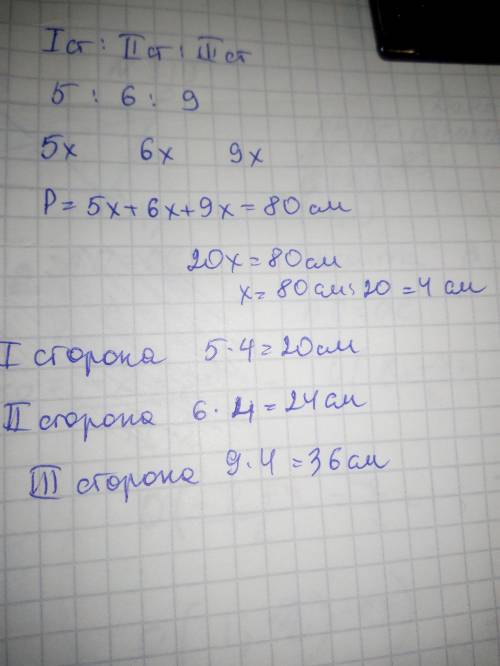 I ст : II ст : III ст
5 : 6 : 9
5x 6x 9x
P = 5x+6x+9x = 80 см
20x = 80 см
x = 80 см : 20 = 4 см
I сторона 5·4=20 см
II сторона 6·4=24 см
III сторона 9·4=36 см